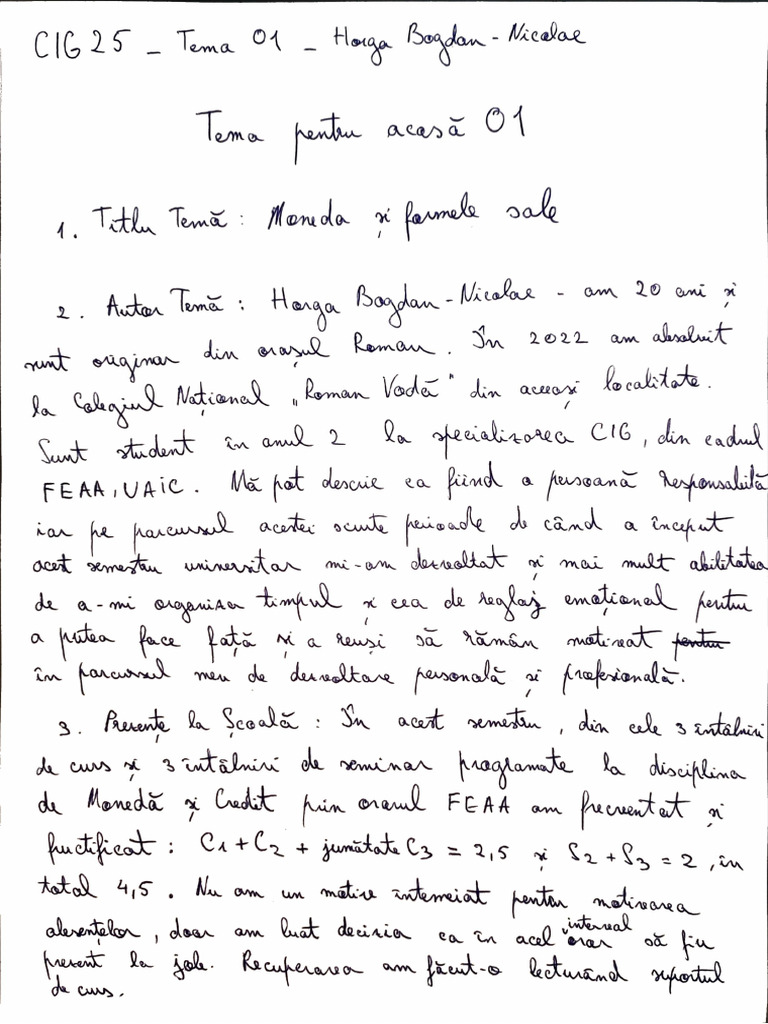 CIG 25 - Tema 01 - Horga Bogdan-Nicolae
Tema pentru acasă 01
1. Titlu Temă: Moneda și formele sale
2. Autor Temă: Horga Bogdan-Nicolae - am 20 ani și
sunt originar din orașul Roman. În 2022 am absolvit
la Colegiul Național „Roman Vodă" din aceeași localitate.
Sunt student în anul 2 la specializarea CIG, din cadrul
FEAA, UAIC. Mă pot descrie ca fiind o persoană responsabilă
iar pe parcursul acestei scurte perioade de când a început
acest semestru universitar mi-am dezvoltat și mai mult abilitatea
de a-mi organiza timpul și cea de reglaj emoțional pentru
a putea face față și a reuși să rămân motivat pentru
în parcursul meu de dezvoltare personală și profesională.
3. Prezențe la Școală: În acest semestru, din cele 3 întâlniri
de curs și 3 întâlniri de seminar programate la disciplina
de Monedă și Credit prin orarul FEAA am frecventat și
fructificat: C1 + C2 + jumătate C3 = 2,5 și S2 + S3 = 2, în
total 4,5. Nu am un motiv întemeiat pentru motivarea
absențelor, doar am luat decizia ca în acel interval orar să fiu
prezent la job. Recuperarea am făcut-o lecturând suportul
de curs.